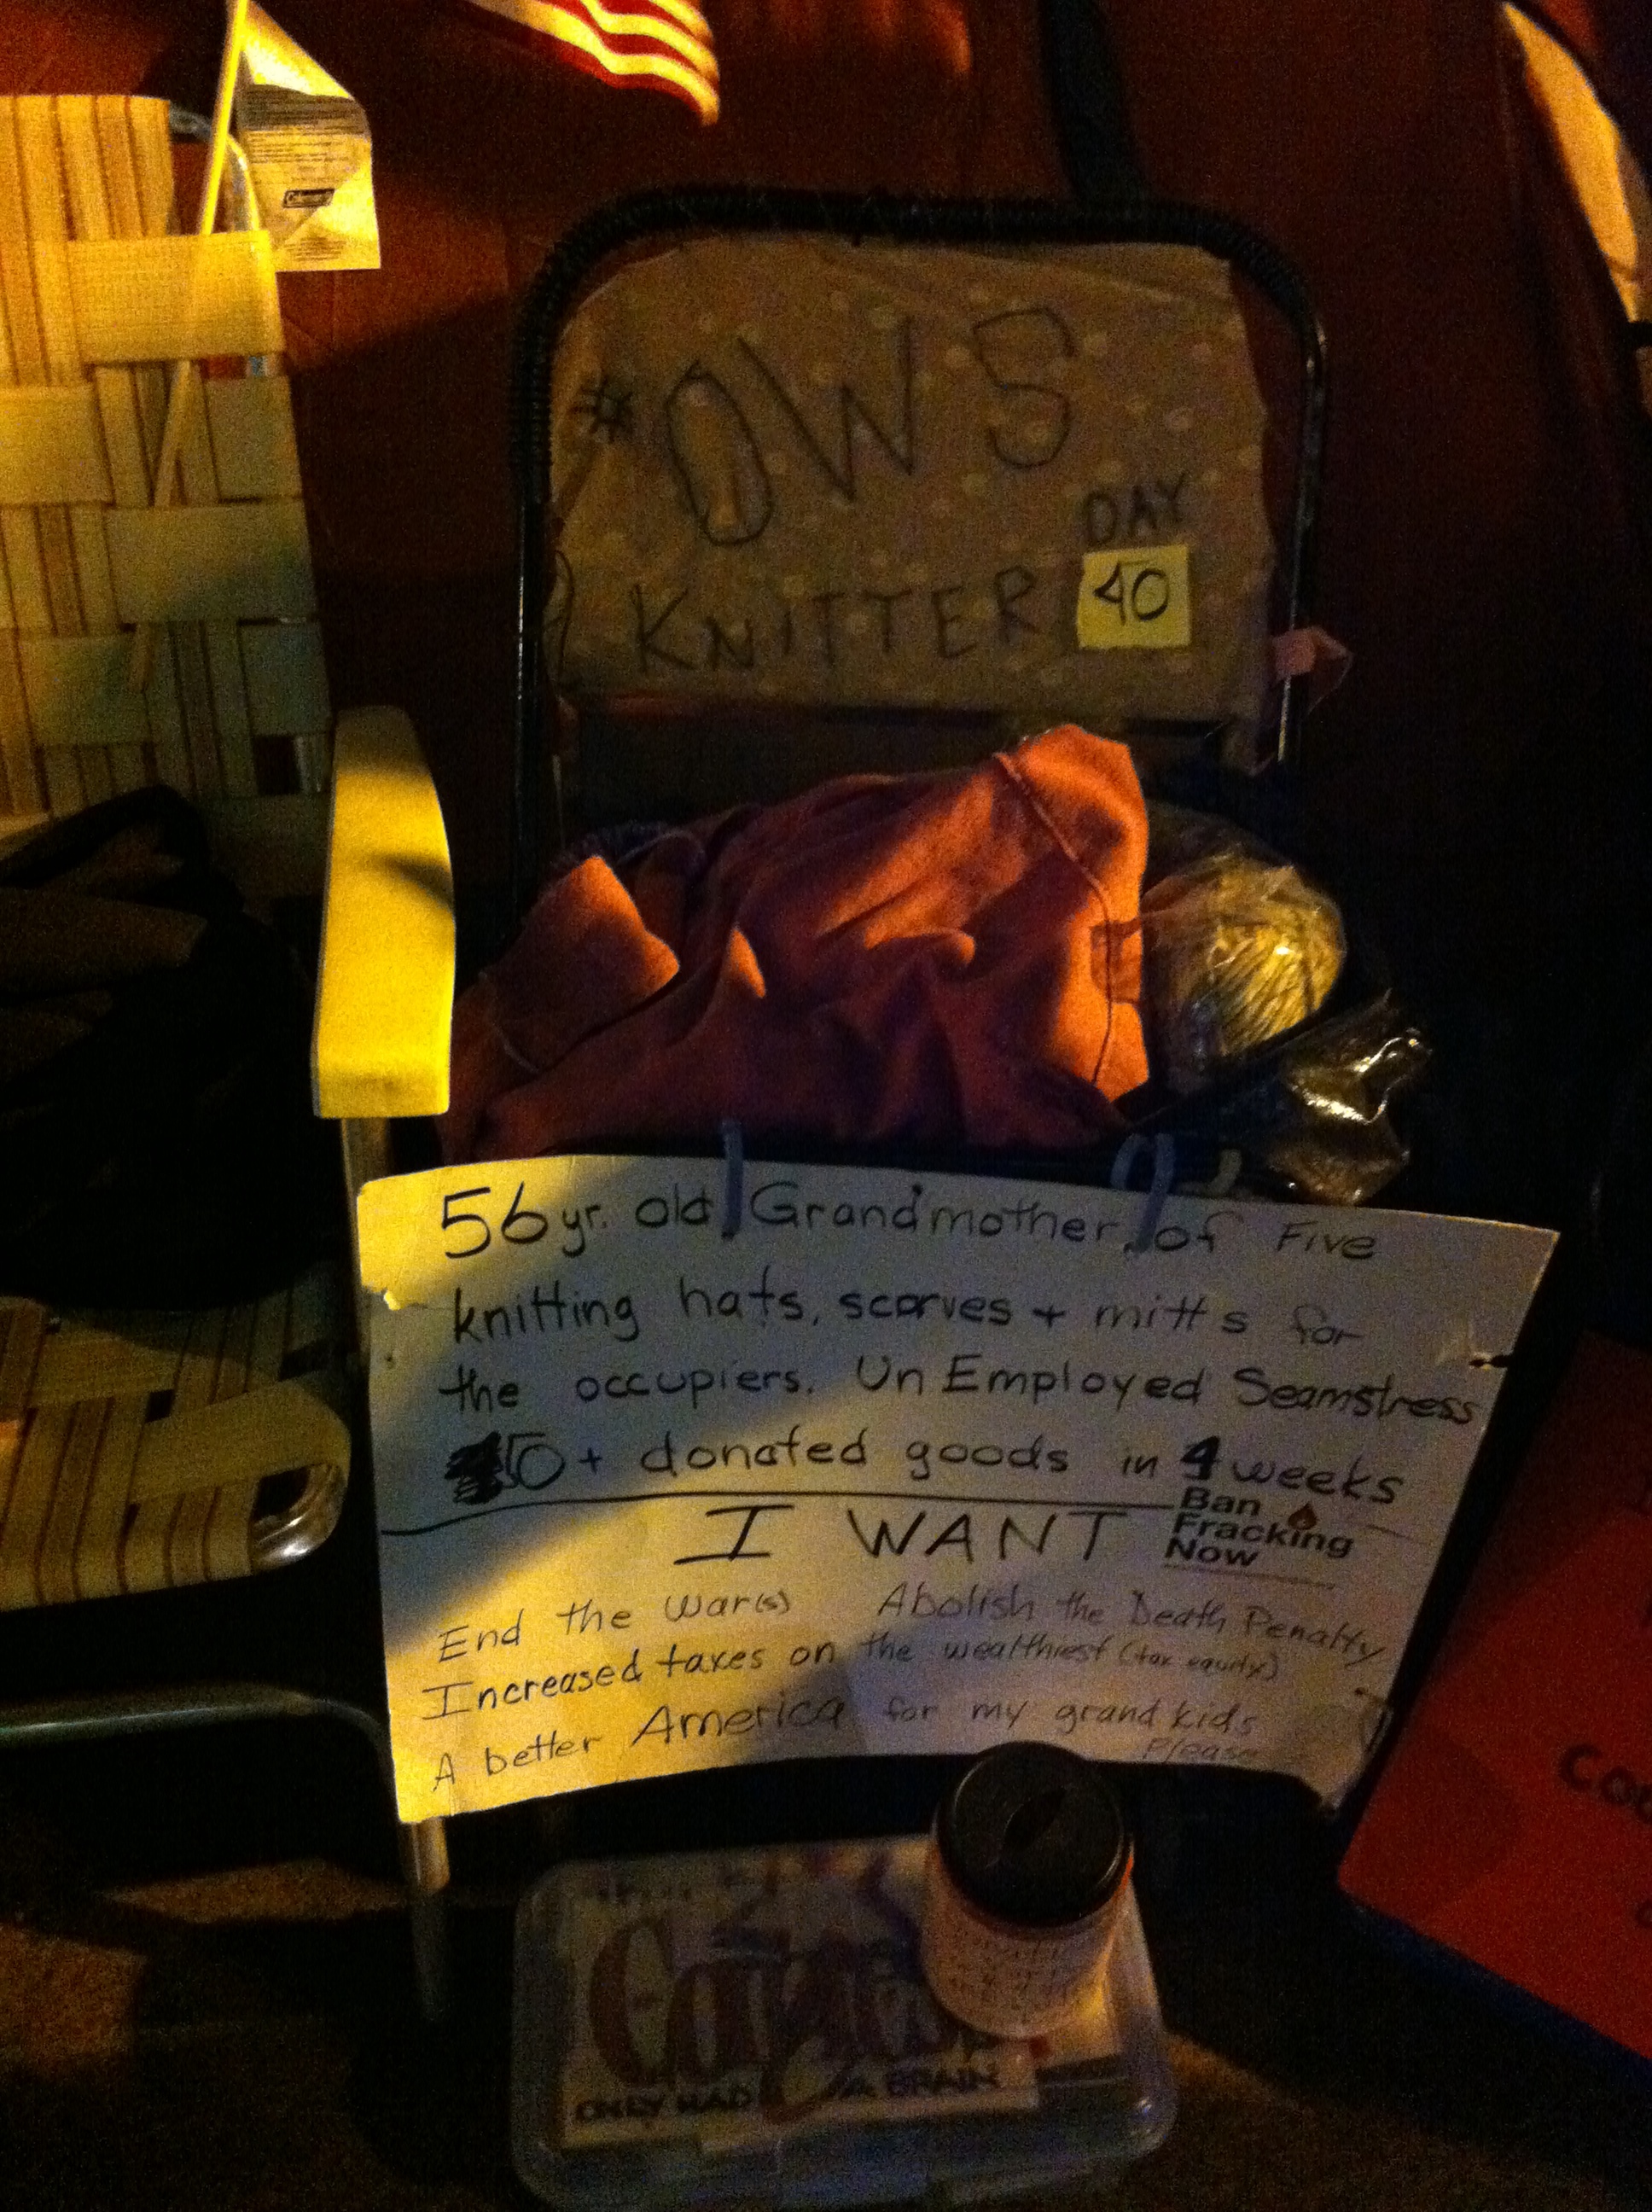 Coleman
#OWS
DAY
KNITTER 40
56 yr. old Grandmother, of Five
knitting hats, scarves + mitts for
the occupiers. UnEmployed Seamstress
50+ donated goods in 4 weeks
I WANT
Ban
Fracking
Now
End the War(s) Abolish the Death Penalty
Increased taxes on the wealthiest (tax equity)
A better America for my grandkids
Please
ONLY HAD A BRAIN